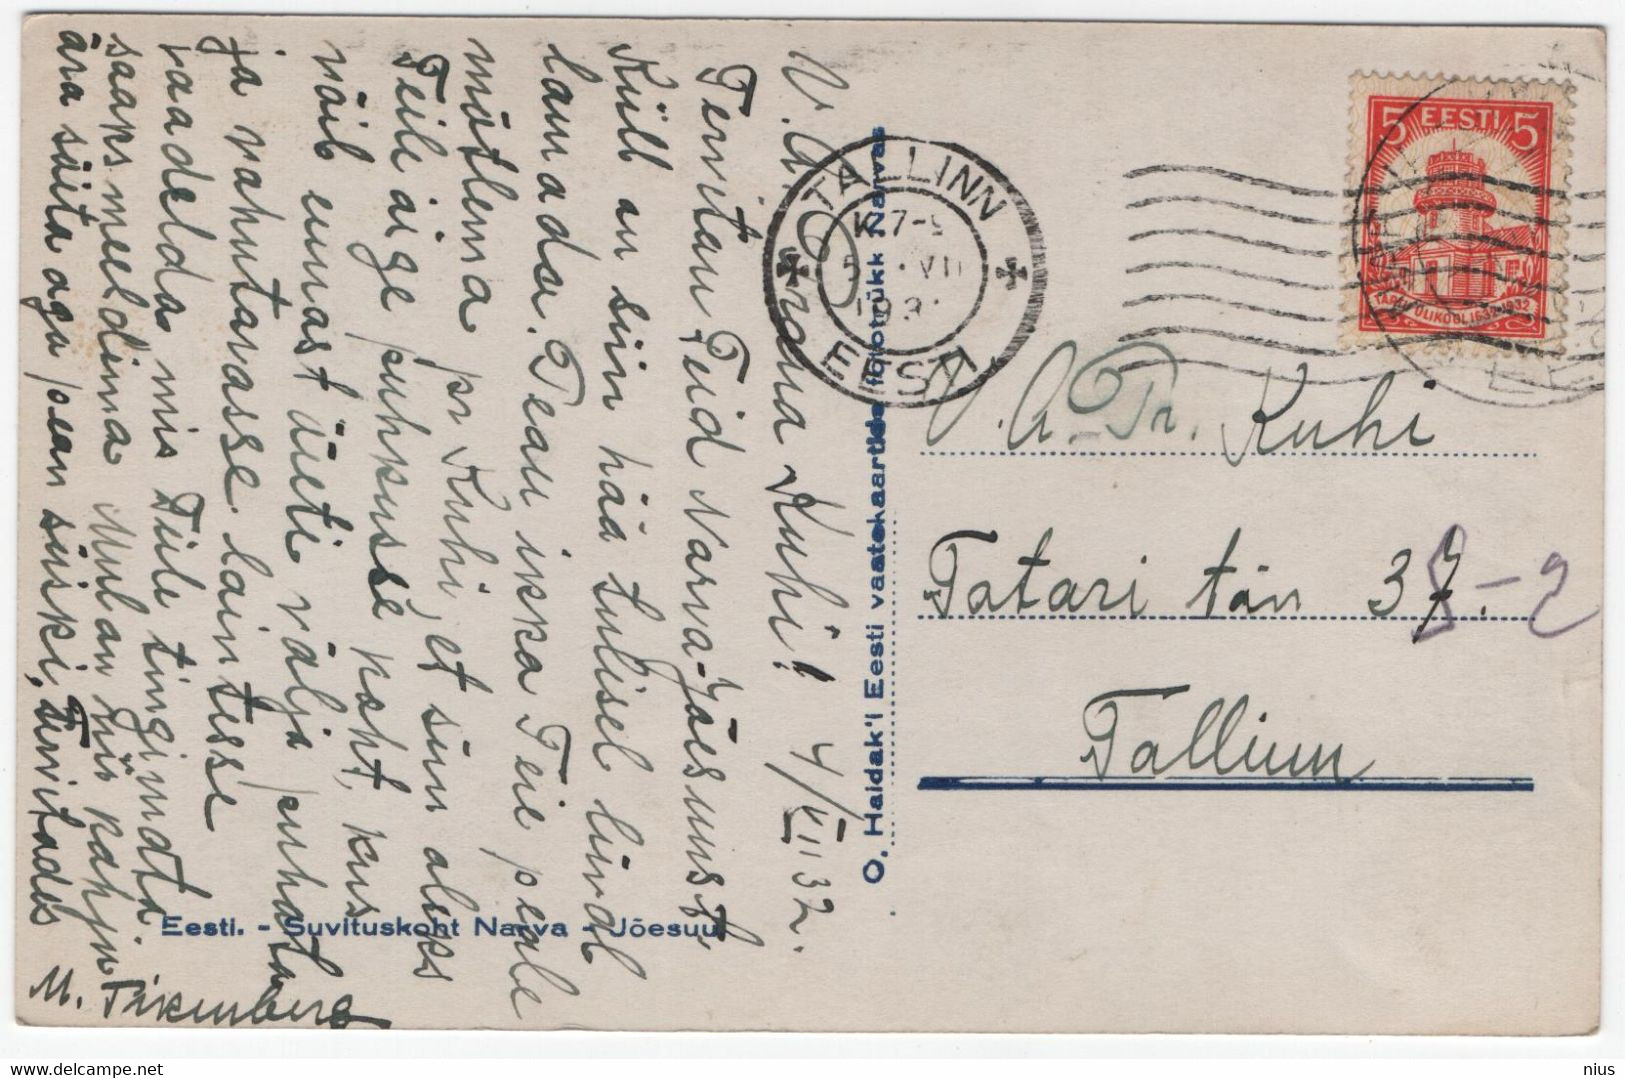 V. A. proua Kuhi! 4/VII 32.
Tervitan Teid Narva-Jõesuust.
Küll on siin hää tulisel liival
lamada. Pean ikka Teie peale
mõtlema pr Kuhi, et siin oleks
Teile õige puhkuse koht, kus
võib ennast üsti välja puhata
ja rahutavasse lainetusse
vaadelda mis Teile tingimata
saaks meeldima. Mul on kahju
ära sõita aga pean siiski, Tervitades
M.
EESTI
5 5
TARTU ÜLIKOOL 1632-1932
TALLINN
K 7-9
5 VII
EESTI
V. A. Pr. Kuhi
Tatari tän 37.
8-2
Tallinn
O. Haidak'i Eesti vaatekaartide fototrükk Narvas
Eesti. - Suvituskoht Narva - Jõesuu
nius